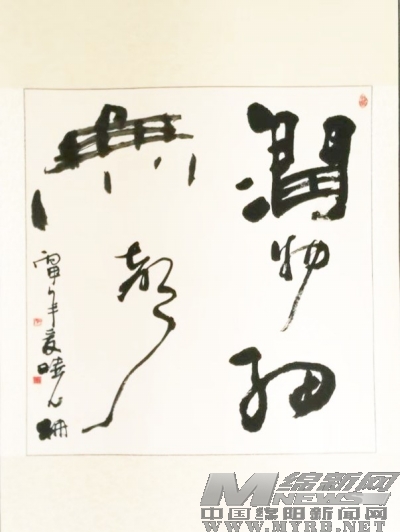 潤物細
無聲
午夏
绵新网
MNEWS
中国绵阳新闻网
WWW.MYRB.NET